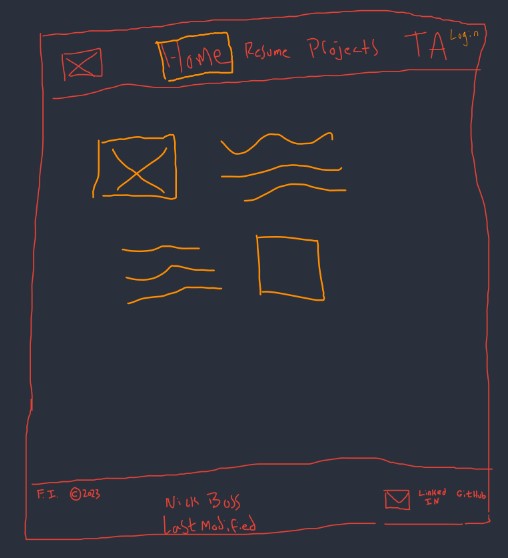 Home Resume Projects TA Login
F.I. ©2023
Nick Boss
Last Modified
Linked
IN
GitHub